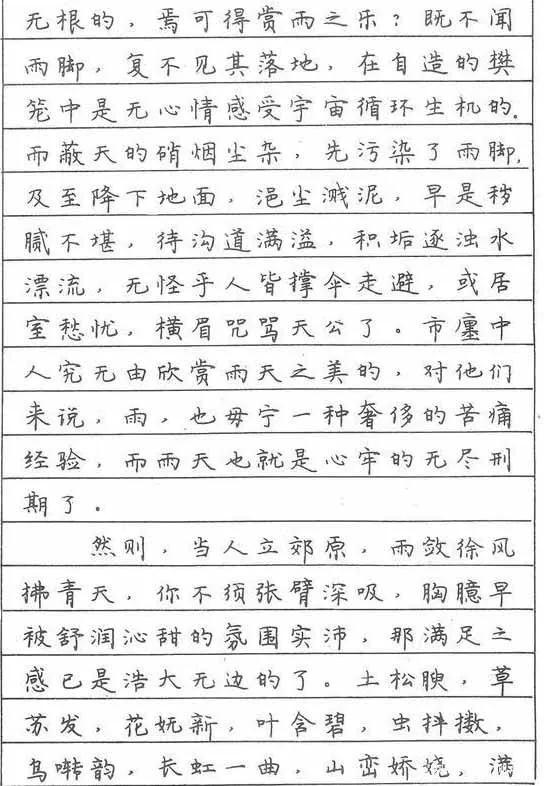 无根的，焉可得赏雨之乐？既不闻
雨脚，复不见其落地，在自造的樊
笼中是无心情感受宇宙循环生机的.
而蔽天的硝烟尘杂，先污染了雨脚,
及至降下地面，浥尘溅泥，早是秽
腻不堪，待沟道满溢，积垢逐浊水
漂流，无怪乎人皆撑伞走避，或居
室愁忧，横眉咒骂天公了。市廛中
人究无由欣赏雨天之美的，对他们
来说，雨，也毋宁一种奢侈的苦痛
经验，而雨天也就是心牢的无尽刑
期了。
然则，当人立郊原，雨敛徐风
拂青天，你不须张臂深吸，胸臆早
被舒润沁甜的氛围实沛，那满足之
感已是浩大无边的了。土松腴，草
苏发，花妩新，叶含碧，虫抖擞，
鸟啭韵，长虹一曲，山峦娇娆，满